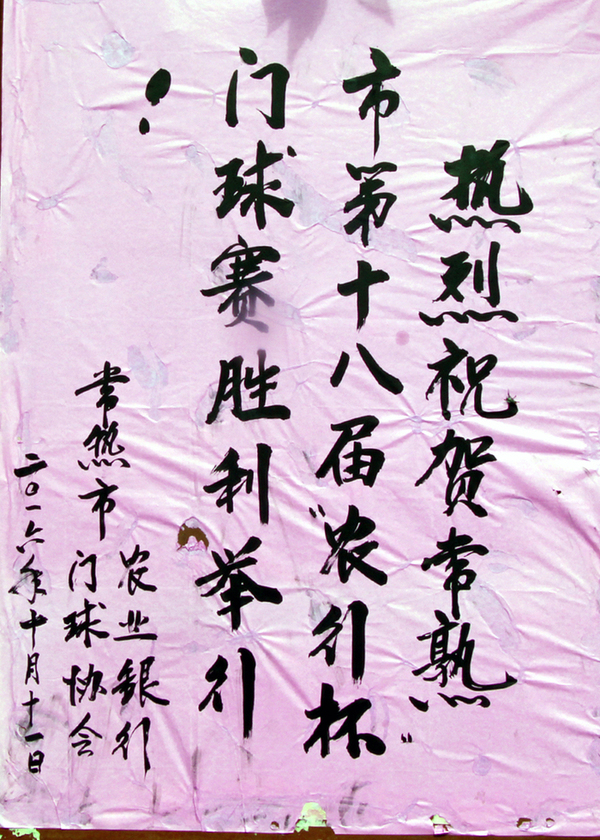 热烈祝贺常熟
市第十八届“农行杯”
门球赛胜利举行
！
常熟市
农业银行
门球协会
二〇一六年十月十一日